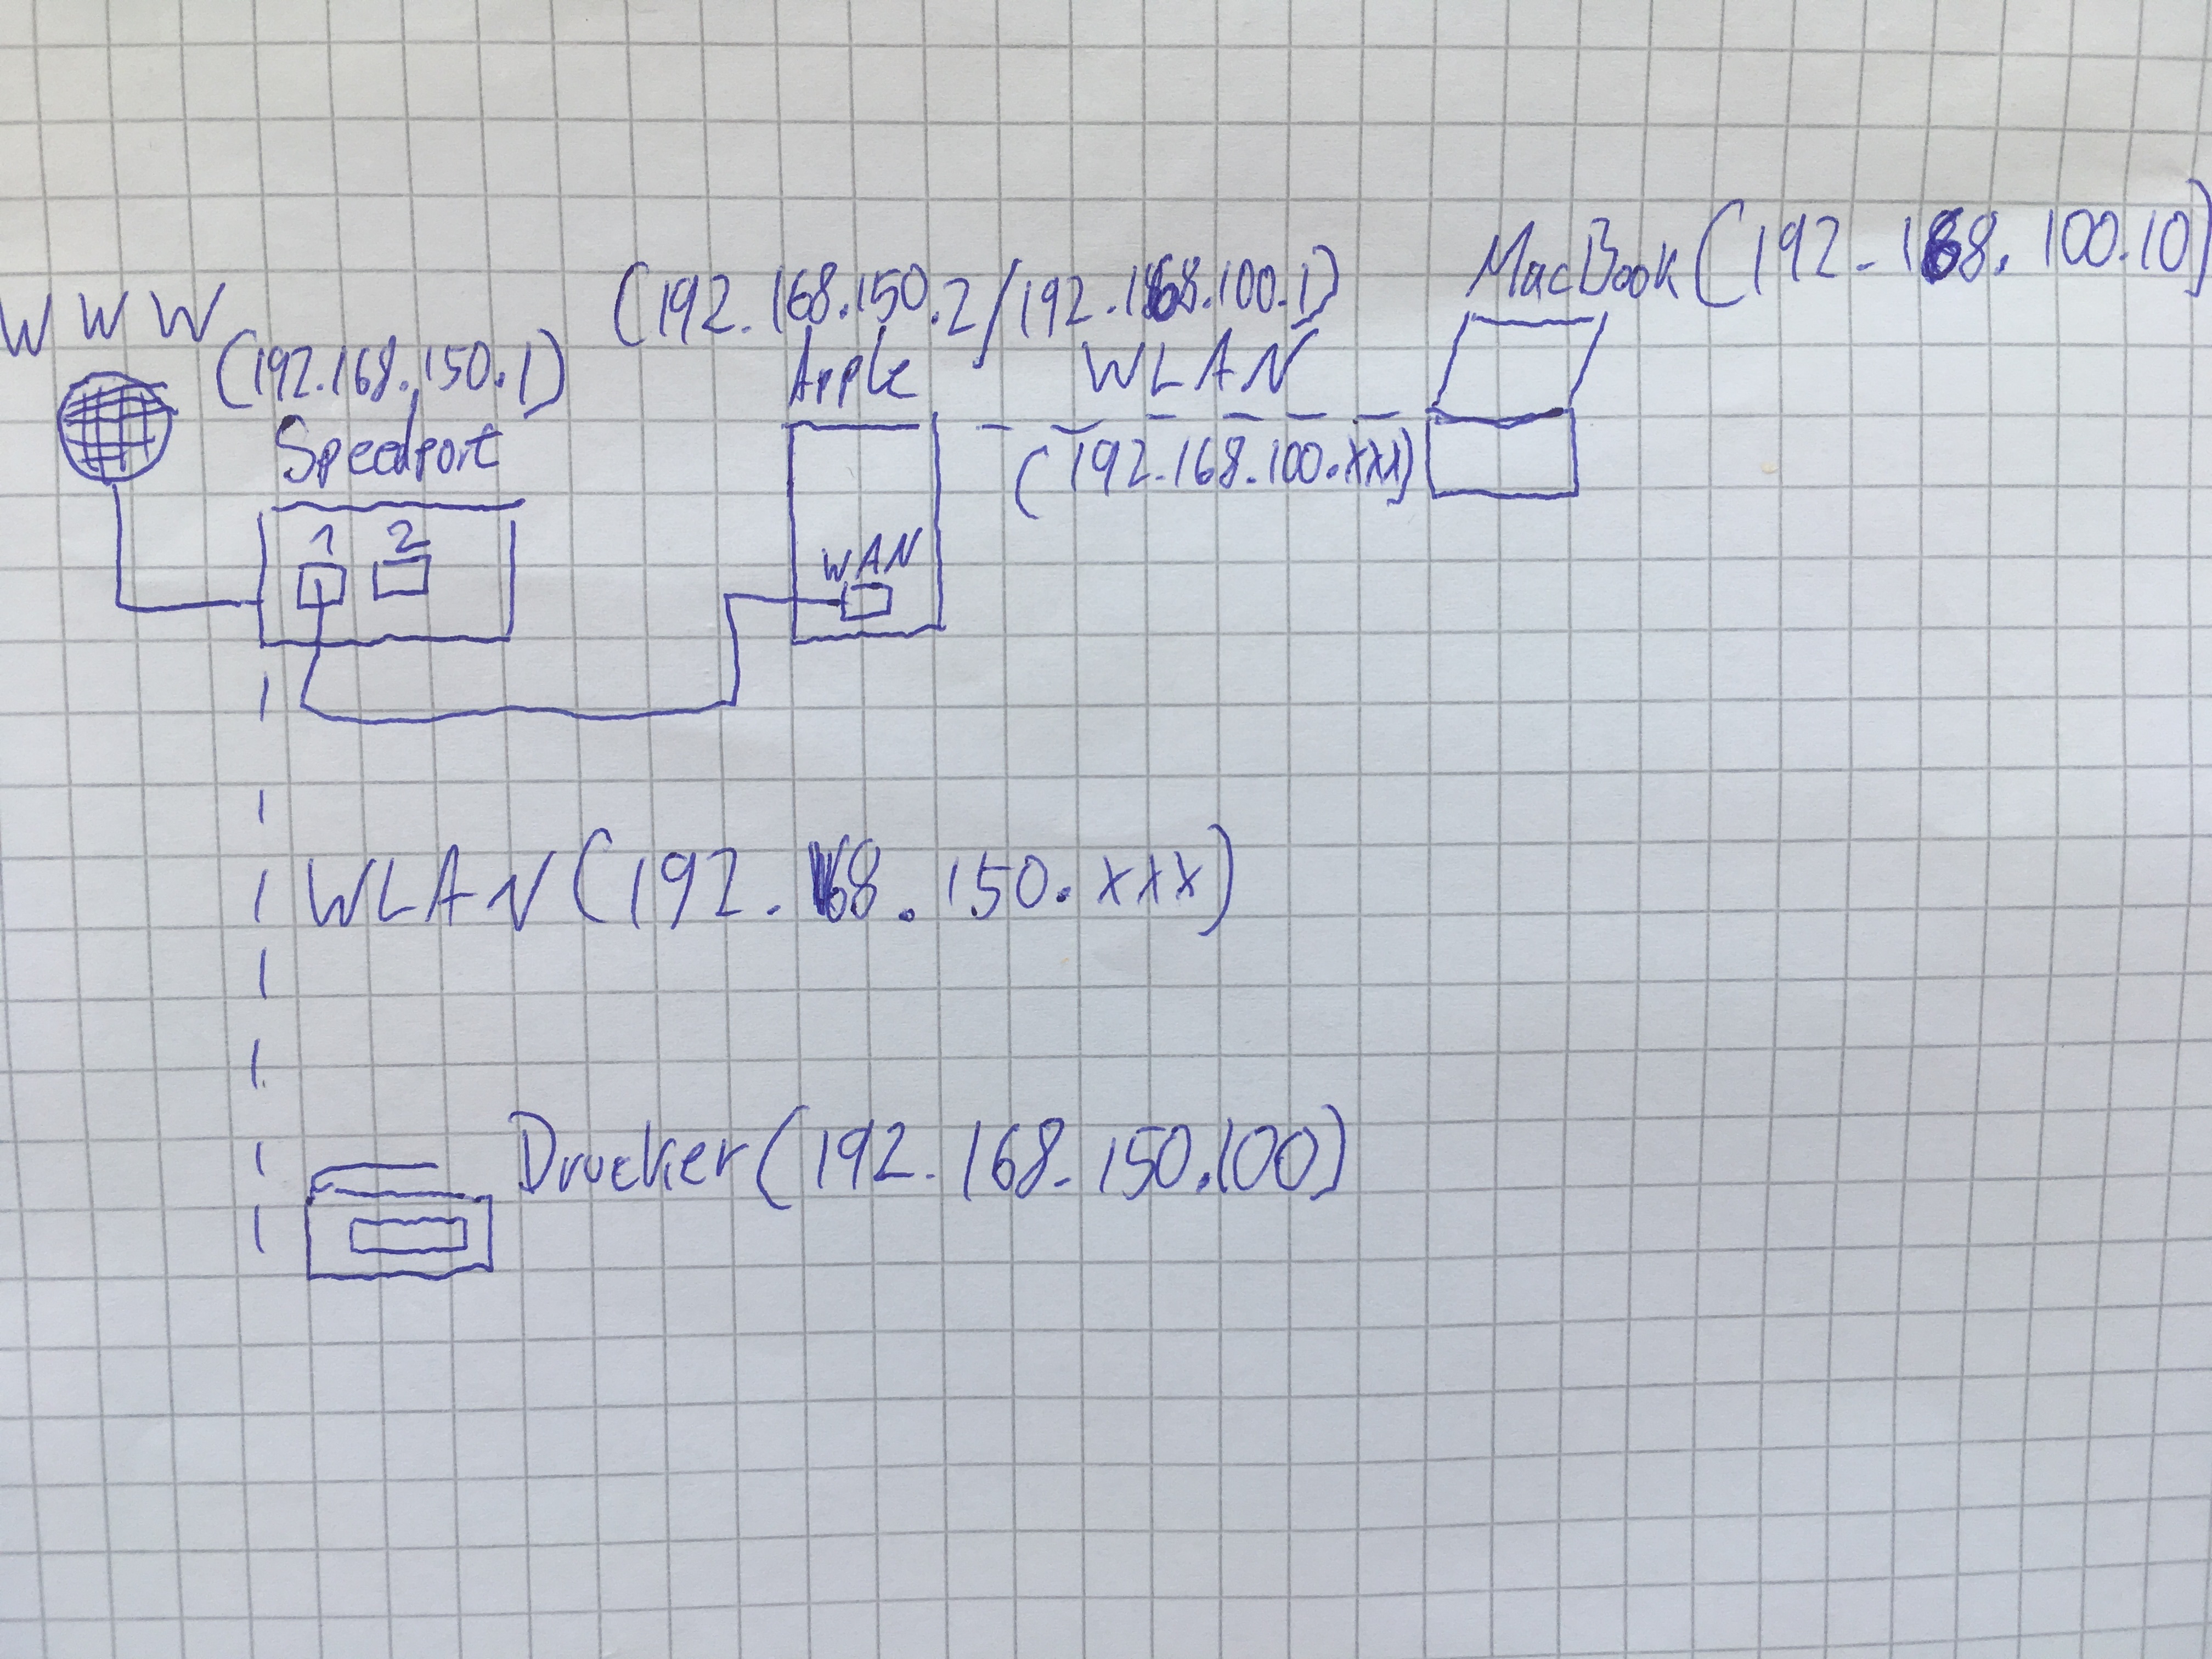 MacBook (192.168.100.10)
(192.168.150.2/192.168.100.1)
WWW
(192.168.150.1)
Apple WLAN
Speedport
(192.168.100.xxx)
1 2
WAN
WLAN (192.168.150.xxx)
Drucker (192.168.150.100)